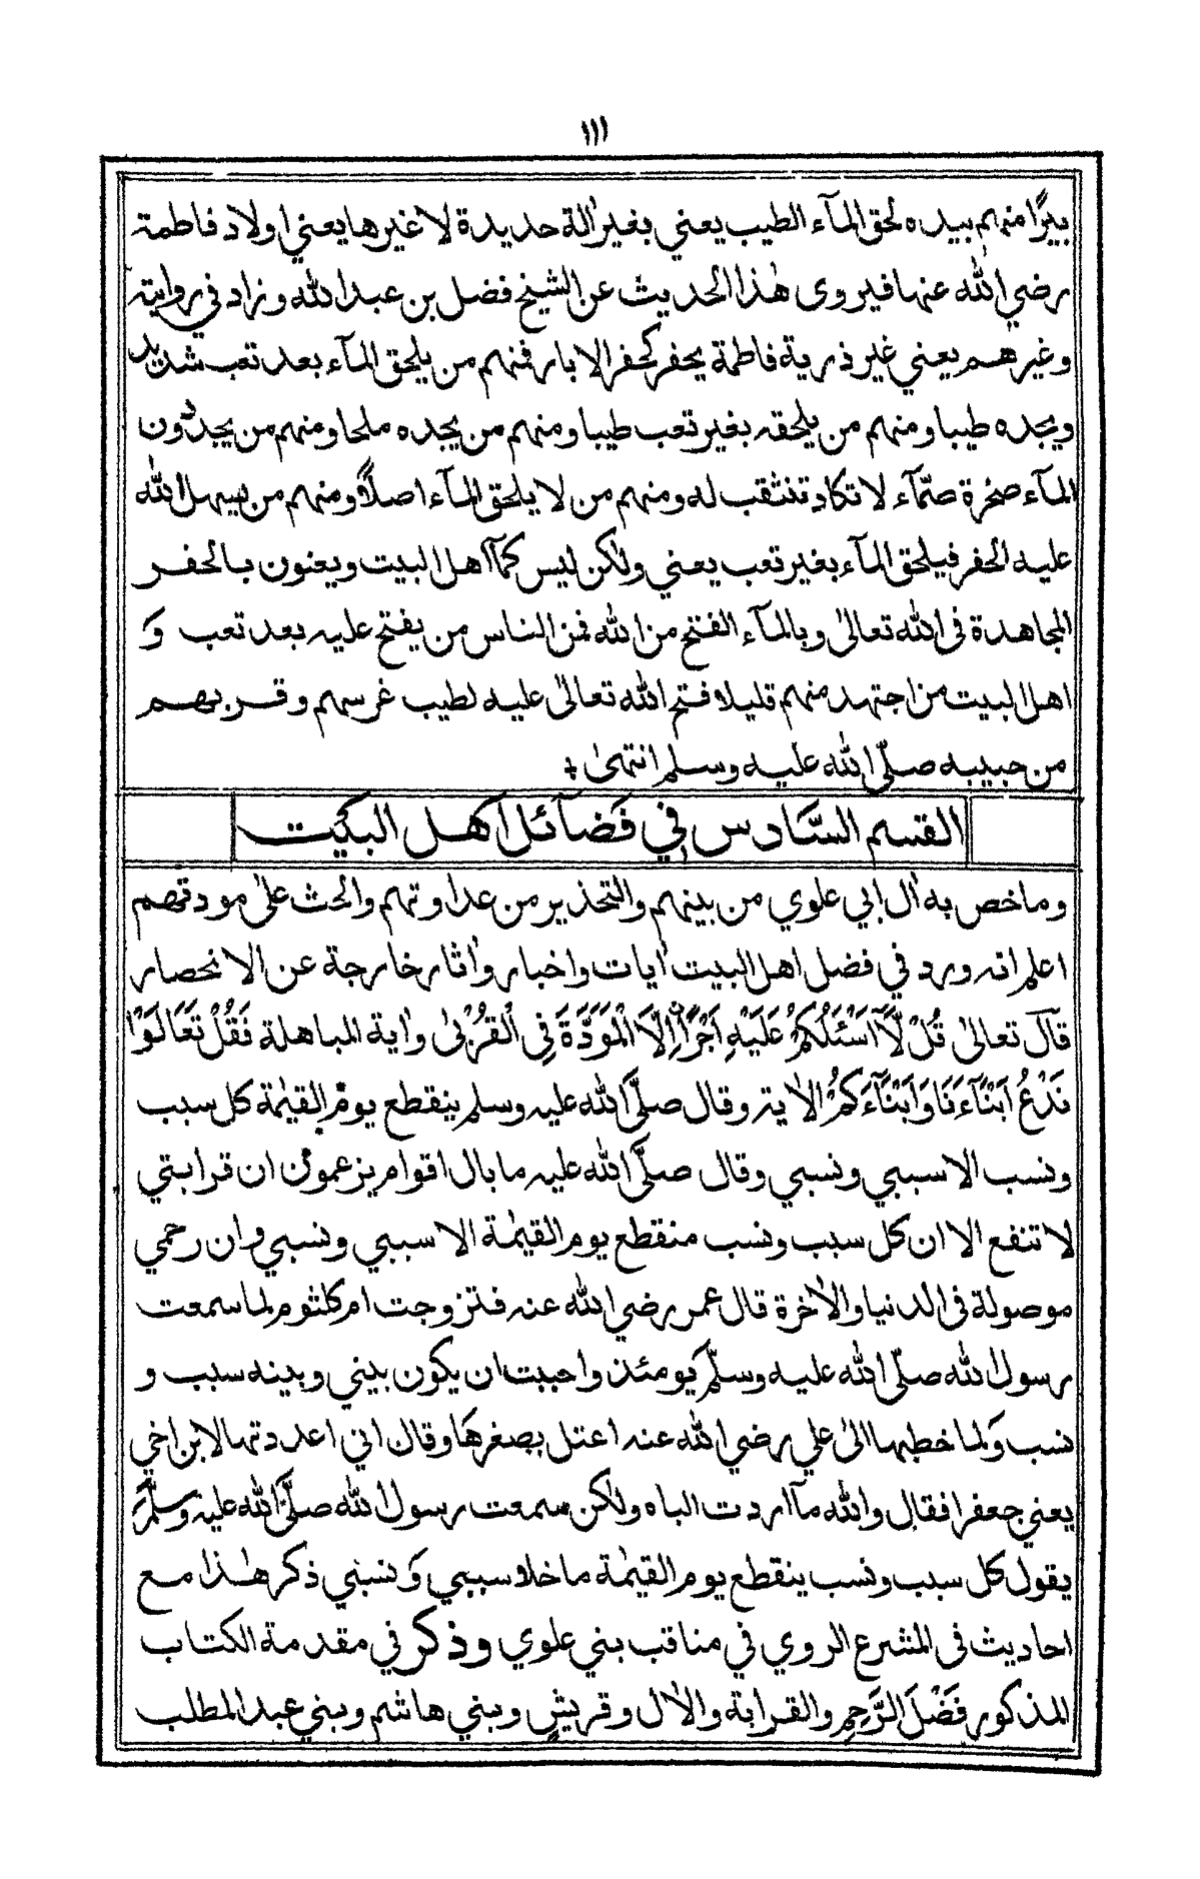 ١١١
بيرًا منهم بيده لحق المآء الطيب يعني بغير اٰلة حديدة لا غيرها يعني اولاد فاطمة
رضي الله عنها فيروى هٰذا الحديث عن الشيخ فضل بن عبد الله وزاد في روايته
وغيرهم يعني غير ذرية فاطمة يحفر كحفر الابار فمنهم من يلحق المآء بعد تعب شديد
ويجده طيبا ومنهم من يلحقه بغير تعب طيبا ومنهم من يجده ملحا ومنهم من يجد دون
المآء صخرة صمّآء لا تكاد تنثقب له ومنهم من لا يلحق المآء اصلاً ومنهم من يسهل الله
عليه الحفر فيلحق المآء بغير تعب يعني ولٰكن ليس كمآ اهل البيت ويعنون بالحفر
المجاهدة فى الله تعالىٰ وبالمآء الفتح من الله فمن الناس من يفتح عليه بعد تعب و
اهل البيت من اجتهد منهم قليلا فتح الله تعالىٰ عليه لطيب غرسهم وقربهم
من حبيبه صلّى الله عليه وسلم انتهىٰ
القسم السَّادس في فَضآئل اَهل البَيت
وما خص به اٰل ابي علوي من بينهم والتحذير من عداوتهم والحث علىٰ مودتهم
اعلم انه ورد في فضل اهل البيت اٰيات واخبار واٰثار خارجة عن الانحصار
قال تعالىٰ قُلْ لَّآ اَسْئَلُكُمْ عَلَيْهِ اَجْرًا اِلَّا الْمَوَدَّةَ فِى الْقُرْبىٰ واٰية المباهلة فَقُلْ تَعَالَوْا
نَدْعُ اَبْنَآءَنَا وَاَبْنَآءَكُمْ الاٰية وقال صلَّى الله عليه وسلم ينقطع يوم القيٰمة كل سبب
ونسب الا سببي ونسبي وقال صلَّى الله عليه ما بال اقوام يزعمون ان قرابتي
لا تنفع الا ان كل سبب ونسب منقطع يوم القيٰمة الا سببي ونسبي وان رحمي
موصولة فى الدنيا والاٰخرة قال عمر رضي الله عنه فتزوجت ام كلثوم لما سمعت
رسول الله صلّى الله عليه وسلّم يومئذ واحببت ان يكون بيني وبينه سبب و
نسب ولما خطبها الىٰ علي رضي الله عنه اعتل بصغرها وقال اني اعددتها لابن اخي
يعني جعفرا فقال والله مآ اردت الباه ولٰكن سمعت رسول الله صلَّى الله عليه وسلَّم
يقول كل سبب ونسب ينقطع يوم القيٰمة ما خلا سببي ونسبي ذكر هٰذا مع
احاديث فى المشرع الروي في مناقب بني علوي وذكر في مقدمة الكتاب
المذكور فَضْلَ الرَّحِمِ والقرابة والاٰل وقريش وبني هاشم وبني عبد المطلب